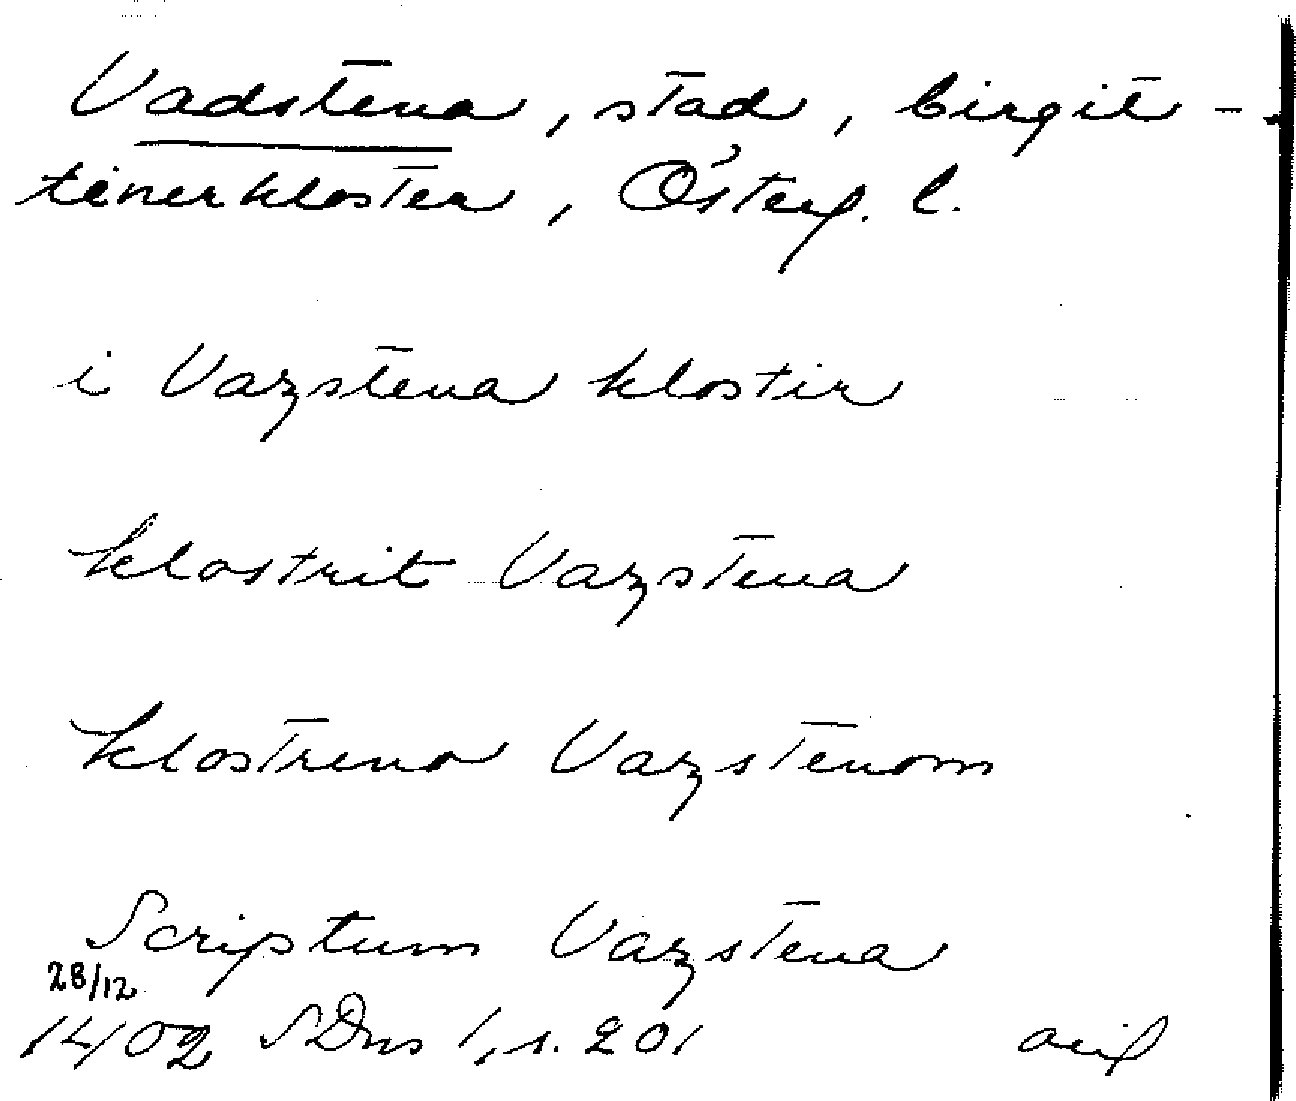 Vadstena, stad, birgit-
tinerkloster, Österg. l.
i Vazstena klostir
klostrit Vazstena
klostreno Vazstenom
Scriptum Vazstena
28/12
1402 SDns 1, s. 201 avi